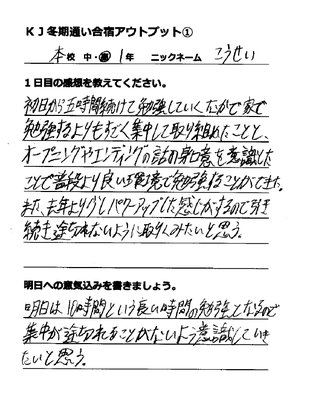 KJ冬期通い合宿アウトプット①
本校 中・高 1年 ニックネーム こうせい
1日目の感想を教えてください。
初日から五時間続けて勉強していくなかで家で
勉強するよりもすごく集中して取り組めたことと、
オープニングやエンディングの話の注意を意識した
ことで普段より良い環境で勉強することができた。
また、去年より少しパワーアップした感じがするので引き
続き途切れないように取りくみたいと思う。
明日への意気込みを書きましょう。
明日は10時間という長い時間の勉強となるので
集中が途切れることがないよう意識していき
たいと思う。